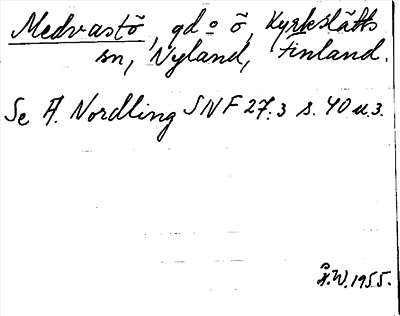 Medvastö, gd o ö, Kyrkslätts
sn, Nyland, Finland.
Se A. Nordling SNF 27:3 s. 40 u. 3.
Å.W. 1955.